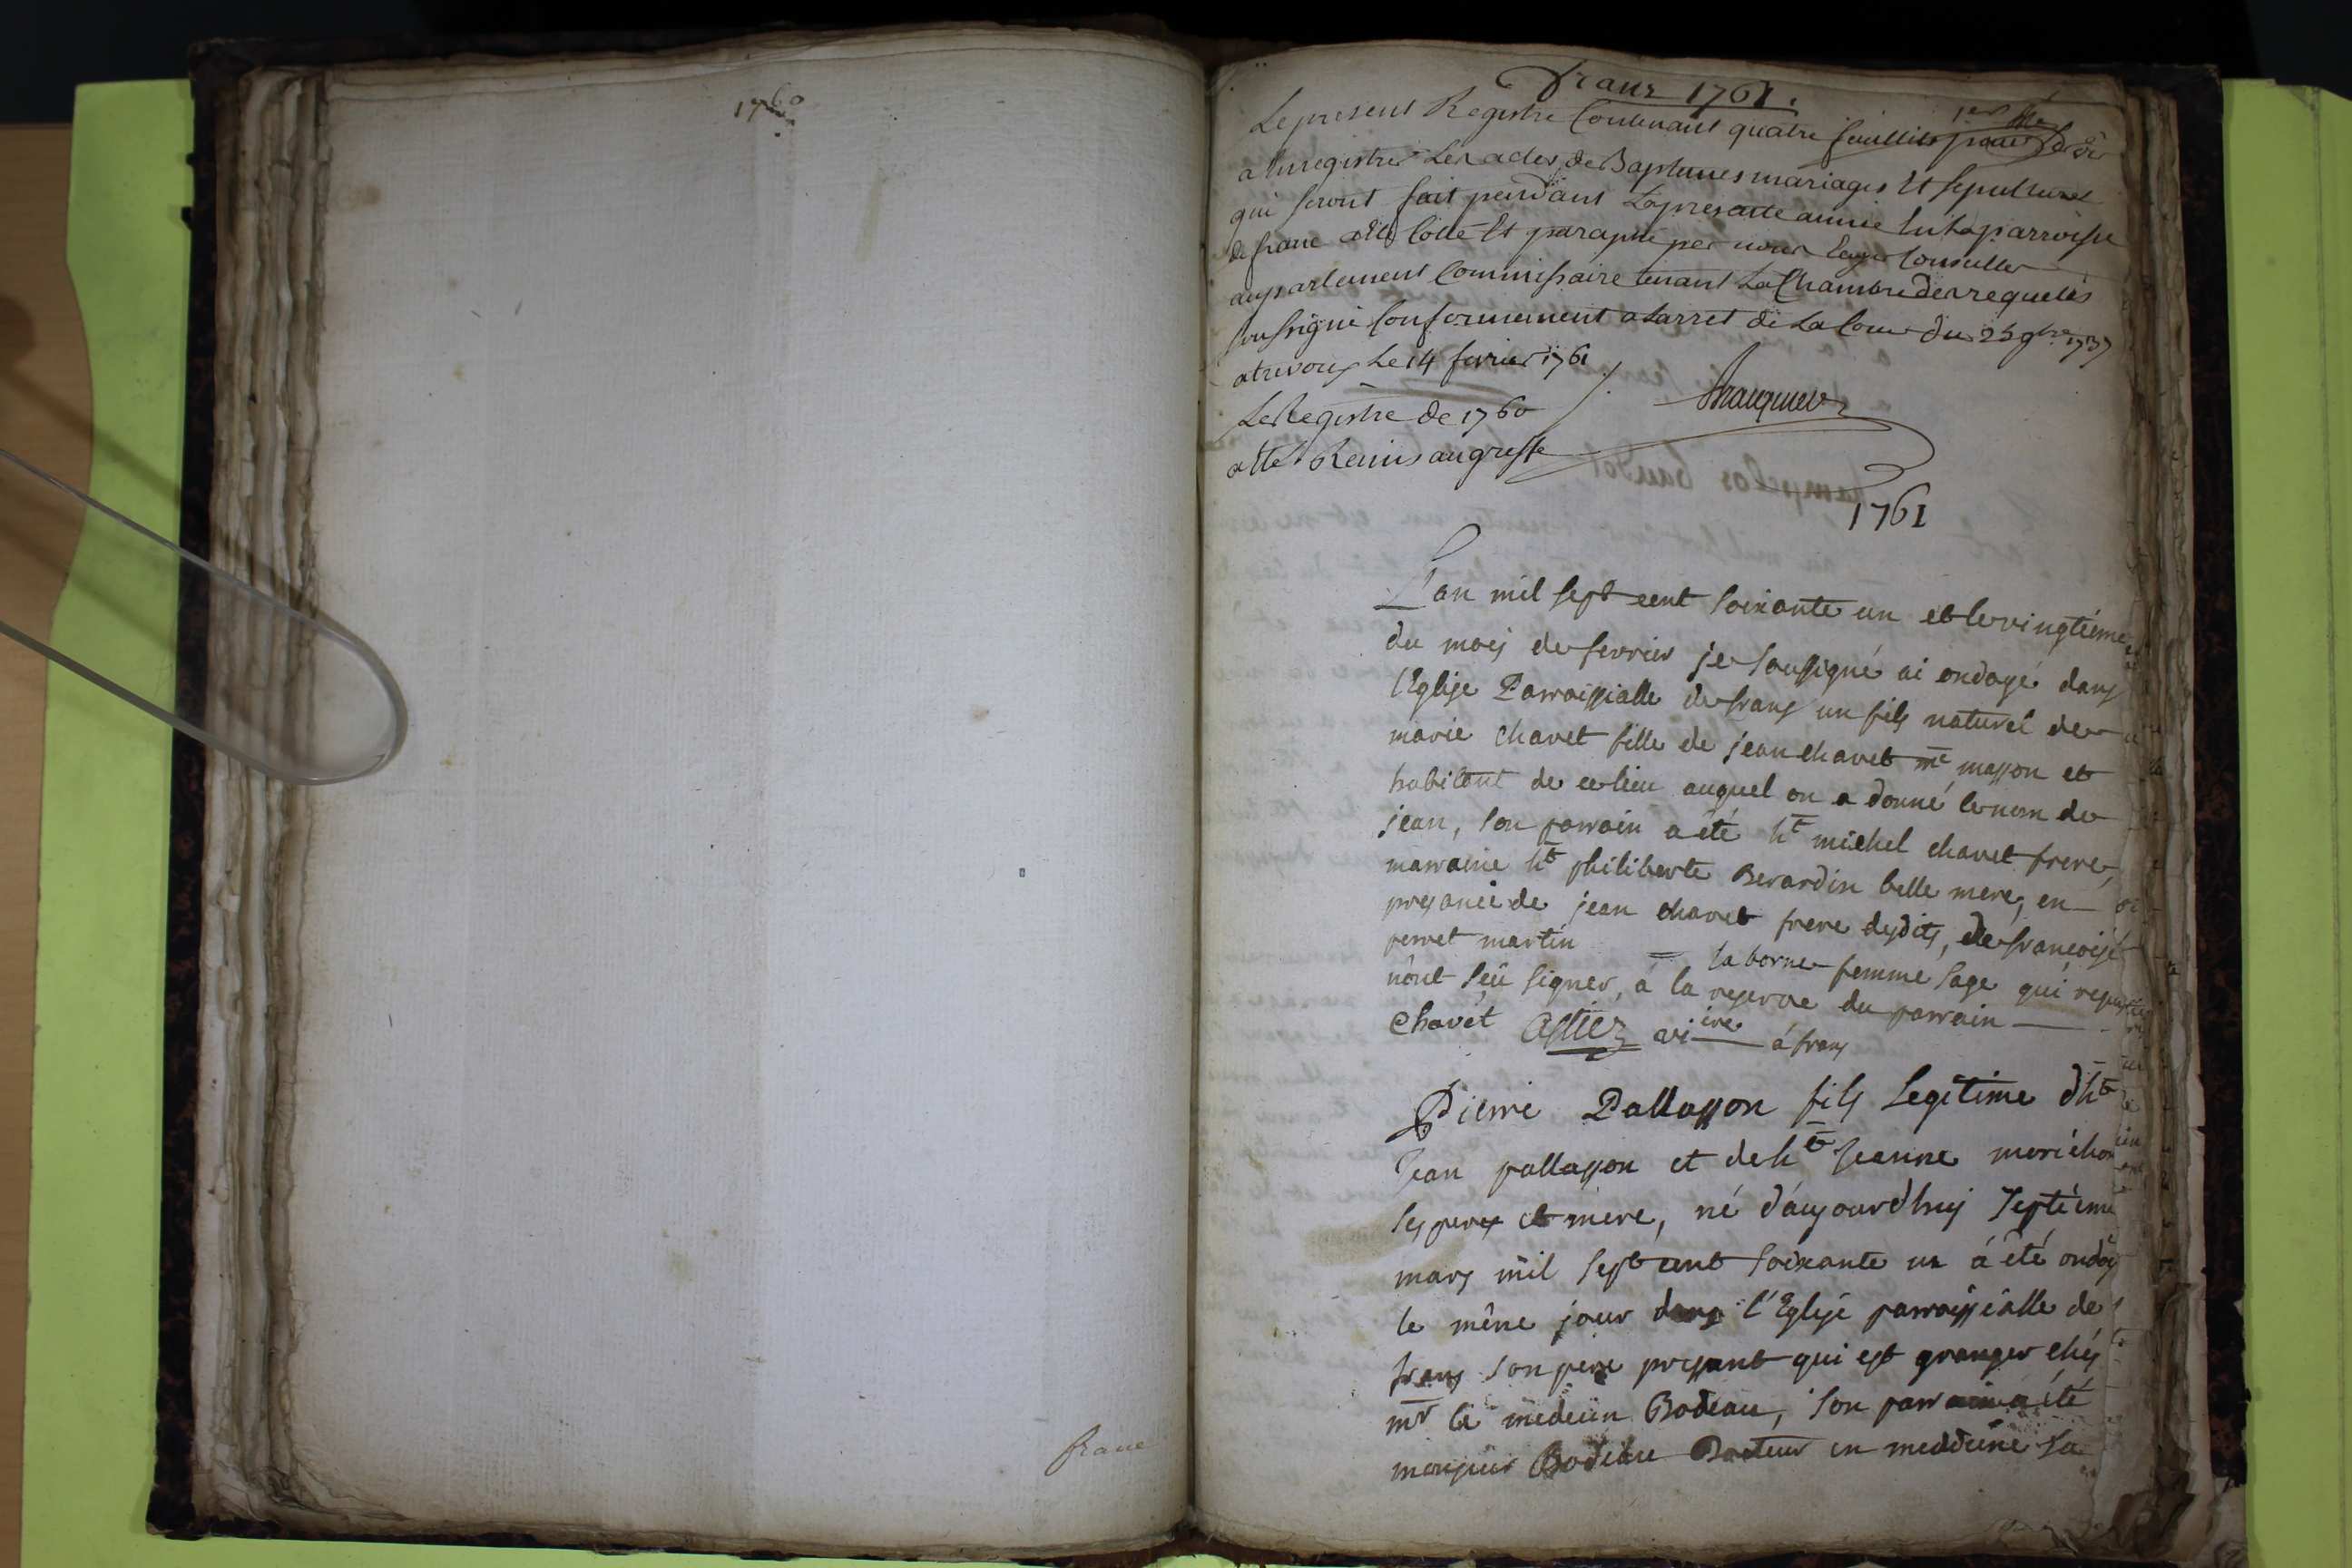 1760
franc
franz 1761.
1er
Le present Registre Contenant quatre feuillets pour servir
a Enregistrer Les actes de Baptemes mariages Et sepultures
qui seront fait pendant La presente annie En La parroisse
de franc a ete Cotté Et paraphé per nous Conseiller
au parlement Commissaire tenant La Chambre des requetes
sousigné Conformement a Larret de La Cour du 25 9bre 1737
a trevoux Le 14 fevrier 1761
Le Registre de 1760
a ete Remis au greffe
1761
L'an mil sept cent soixante un et le vingtiéme
du mois de fevrier je soussigné ai ondoyé dans
l'Eglise Parroissialle de frans un fils naturel de
marie chavet fille de jean chavet me masson et
habitant de ce lieu auquel on a donné le nom de
jean, son parrain a été ht michel chavet frere,
marraine ht philiberte Berardin belle mere, en
presance de jean chavet frere desdits, de françoise
perret martin = laborne femme sage qui
n'ont sçu signer, à la reserve du parrain
Chavet Astier vi ire à frans
Pierre Pallasson fils Legitime d'ht
Jean pallasson et de ht Jeanne morichon
ses perex et mere, né d'aujourd'huy septiéme
mars mil sept cent soixante un à été ondoy
le même jour dans l'Eglise parroissialle de
frans son pere present qui est granger chés
mr le medecin Bodeau, son parrain a été
monsieur Bodeau Docteur en medecine sa